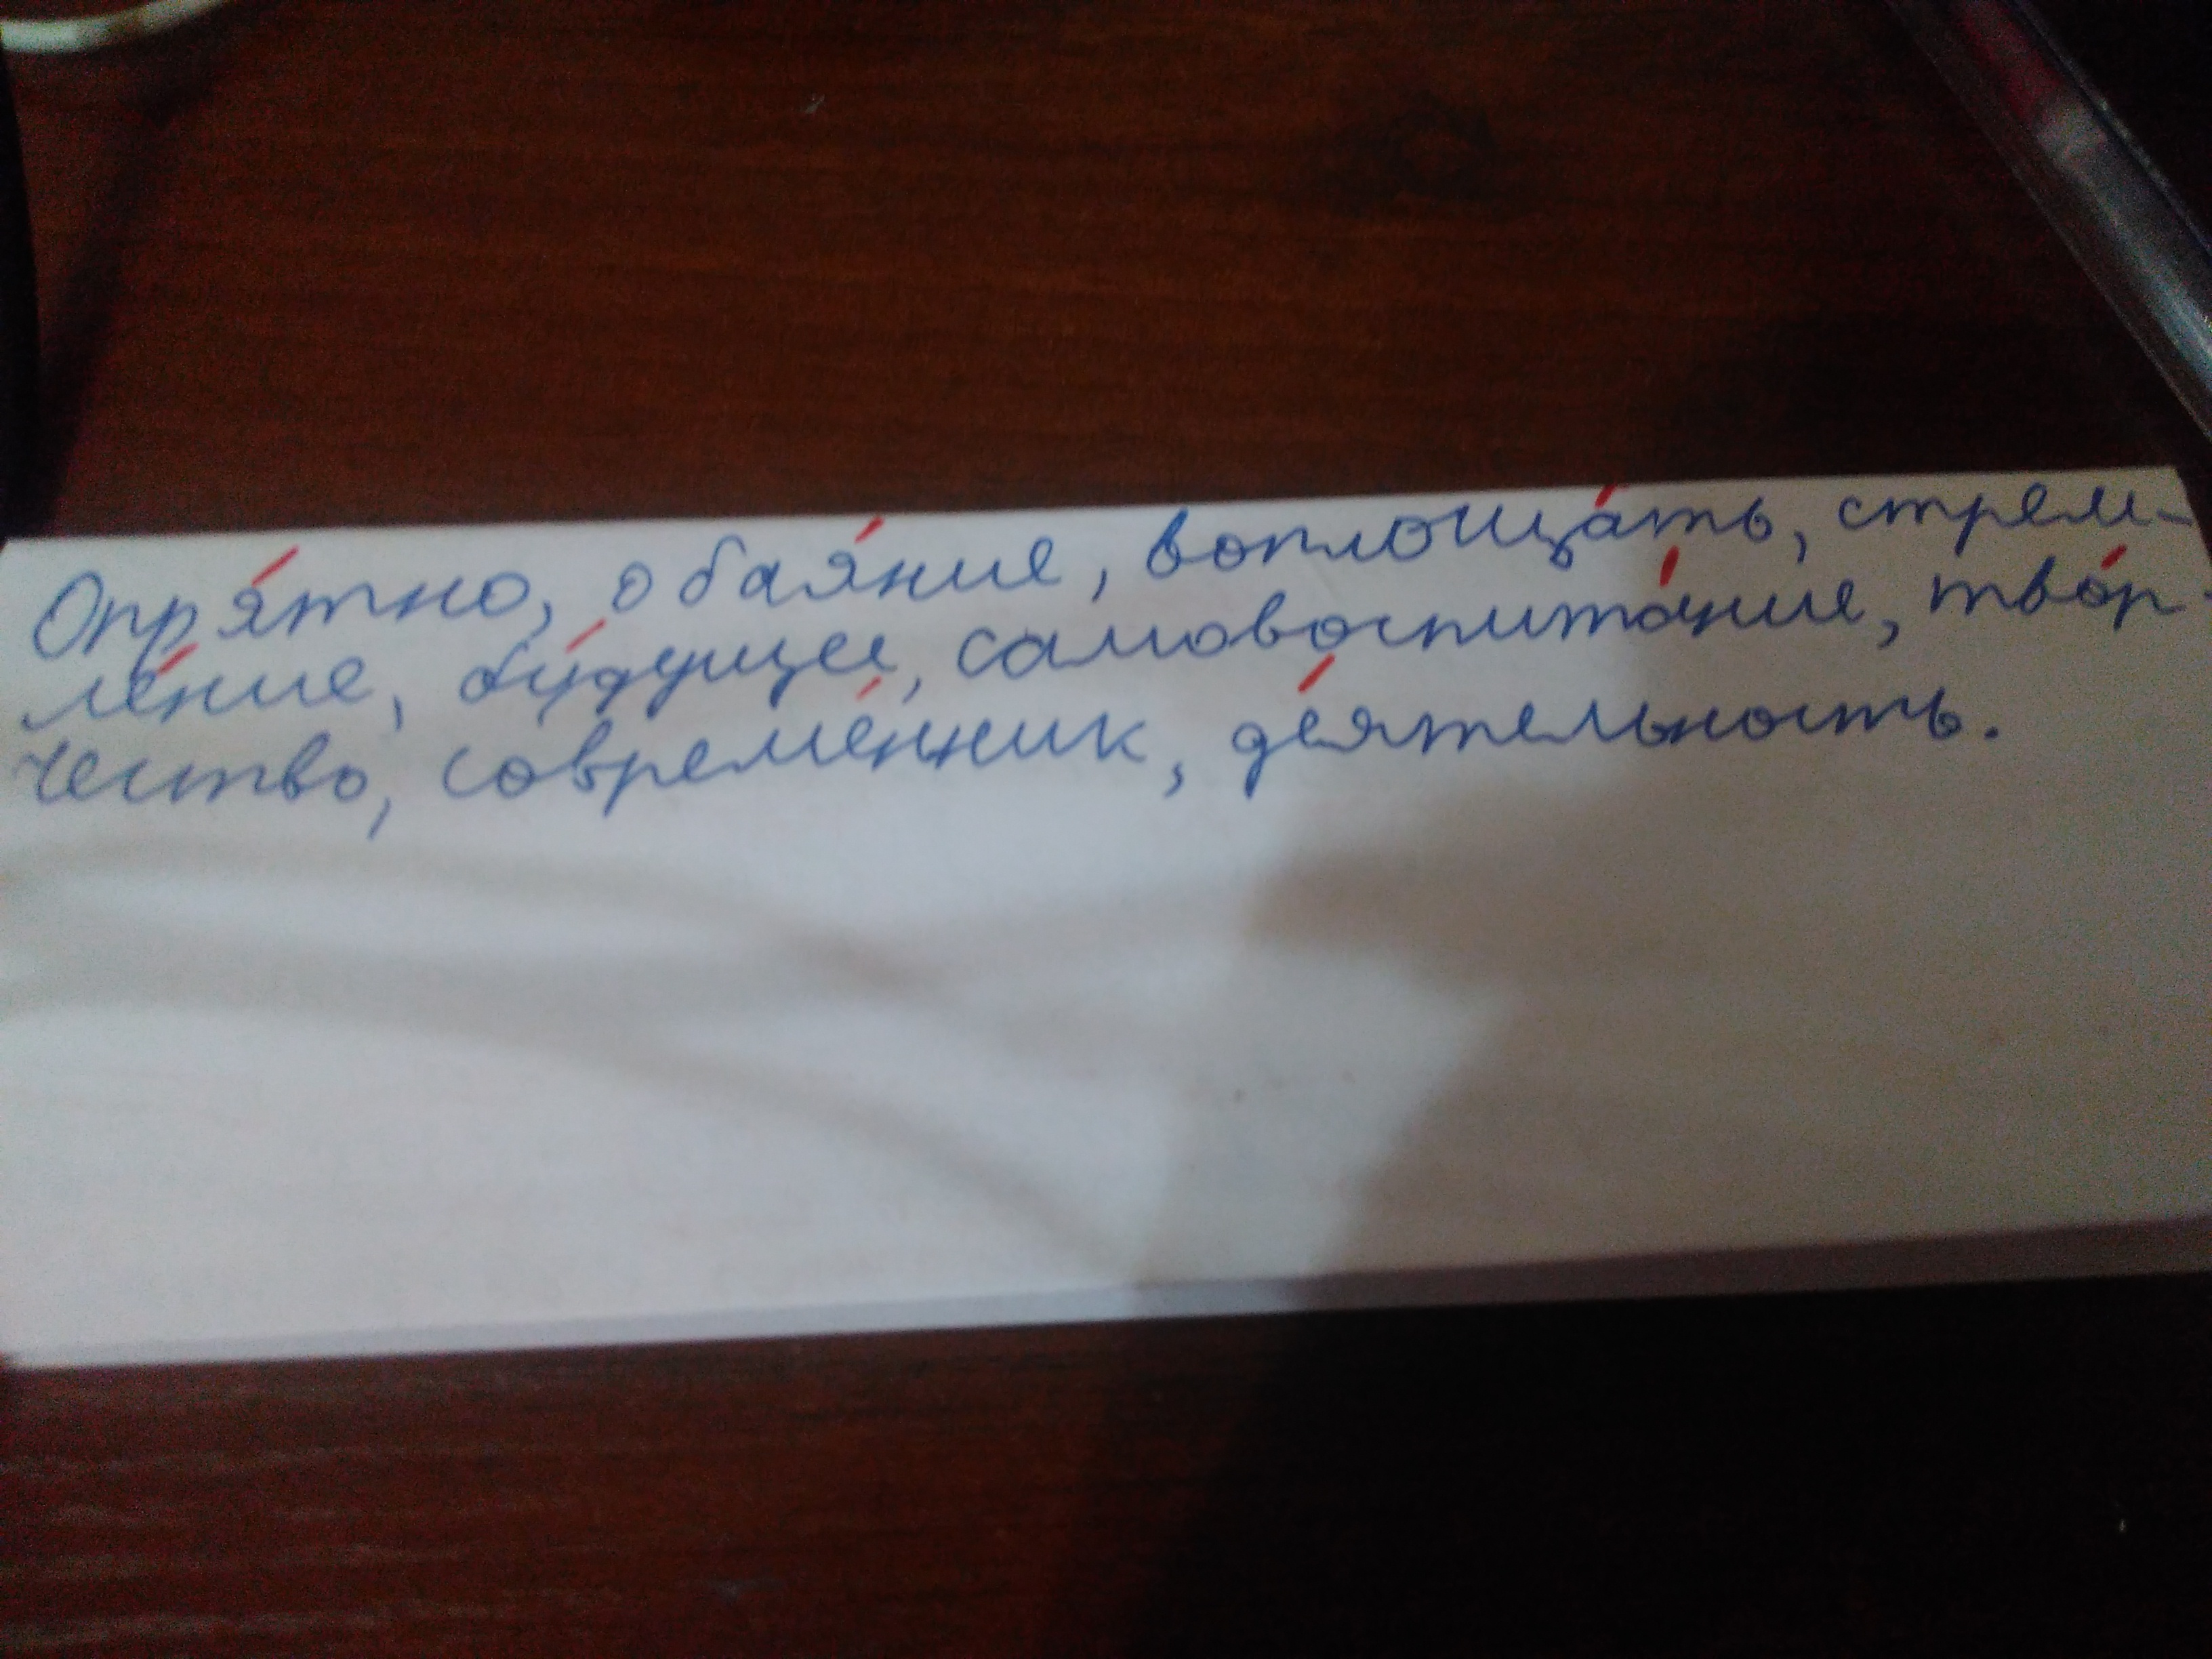 Опря́тно, обая́ние, воплоща́ть, стрем-
ле́ние, бу́дущее, самовоспита́ние, тво́р-
чество, совреме́нник, де́ятельность.